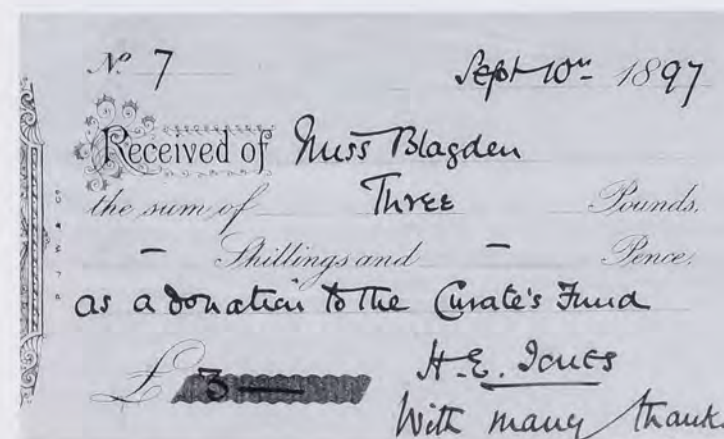 No. 7 Sept 10th 1897
Received of Miss Blagden
the sum of Three Pounds.
– Shillings and – Pence.
as a donation to the Curate's Fund
£ 3 —
H. E. Jones
With many thank